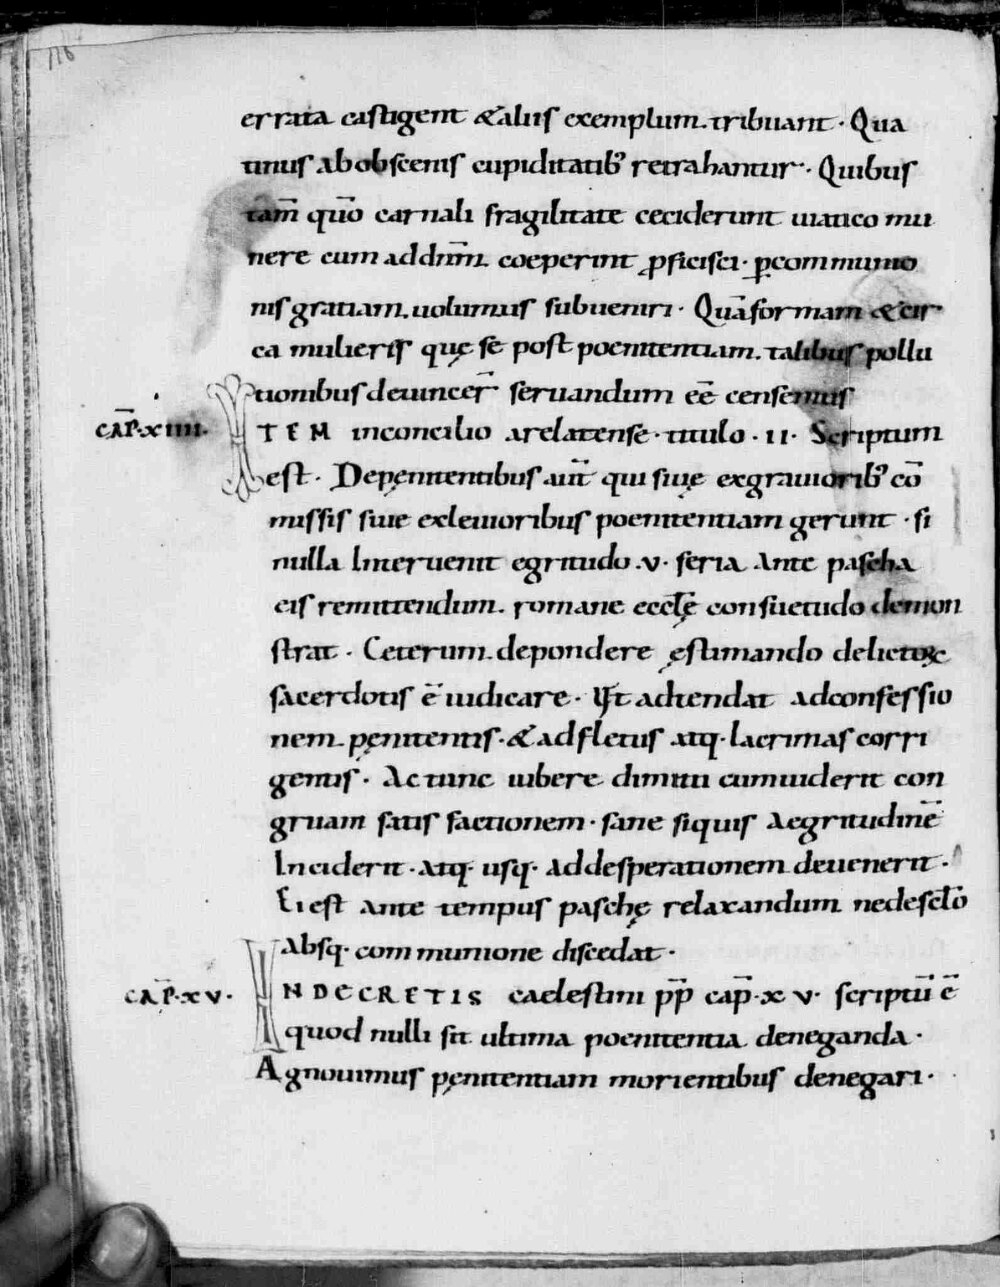 116
errata castigent &aliis exemplum tribuant · Qua
tinus ab obscenis cupiditatib; retrahantur · Quibus
tam̄ quō carnali fragilitate ceciderunt uiatico mu
nere cum ad dn̄m coeperint ꝓficisci · ꝑ communio
nis gratiam uolumus subueniri · Quā formam & cir
ca mulieris quę se post poenitentiam talibus pollu
tionibus deuincer̄ seruandum eē censemus
CAP̄·XIIII· ITEM in concilio arelatense · titulo · II · Scriptum
est · De pęnitentibus aut̄ qui siuę ex grauiorib; cō
missis siue ex leuioribus poenitentiam gerunt · si
nulla Interuenit egritudo · v · feria Ante pascha
eis remittendum romane eccl̄ę consuetudo demon
strat · Ceterum de pondere ęstimando delictoꝝ
sacerdotis ē iudicare · Ut adtendat ad confessio
nem pęnitentis · & ad fletus atq· lacrimas corri
gentis · Ac tunc iubere dimitti cum uiderit con
gruam satis factionem · sane siquis Aegritudinē
Inciderit · Atq· usq· Ad desperationem deuenerit ·
Ei est Ante tempus paschę relaxandum ne de sc̄lo
Absq· communione discedat ·
CAP̄·XV· IN DECRETIS caelestini p̄p̄ cap̄·xv· scriptū ē
quod nulli sit ultima poenitentia deneganda ·
Agnouimus pęnitentiam morientibus denegari ·